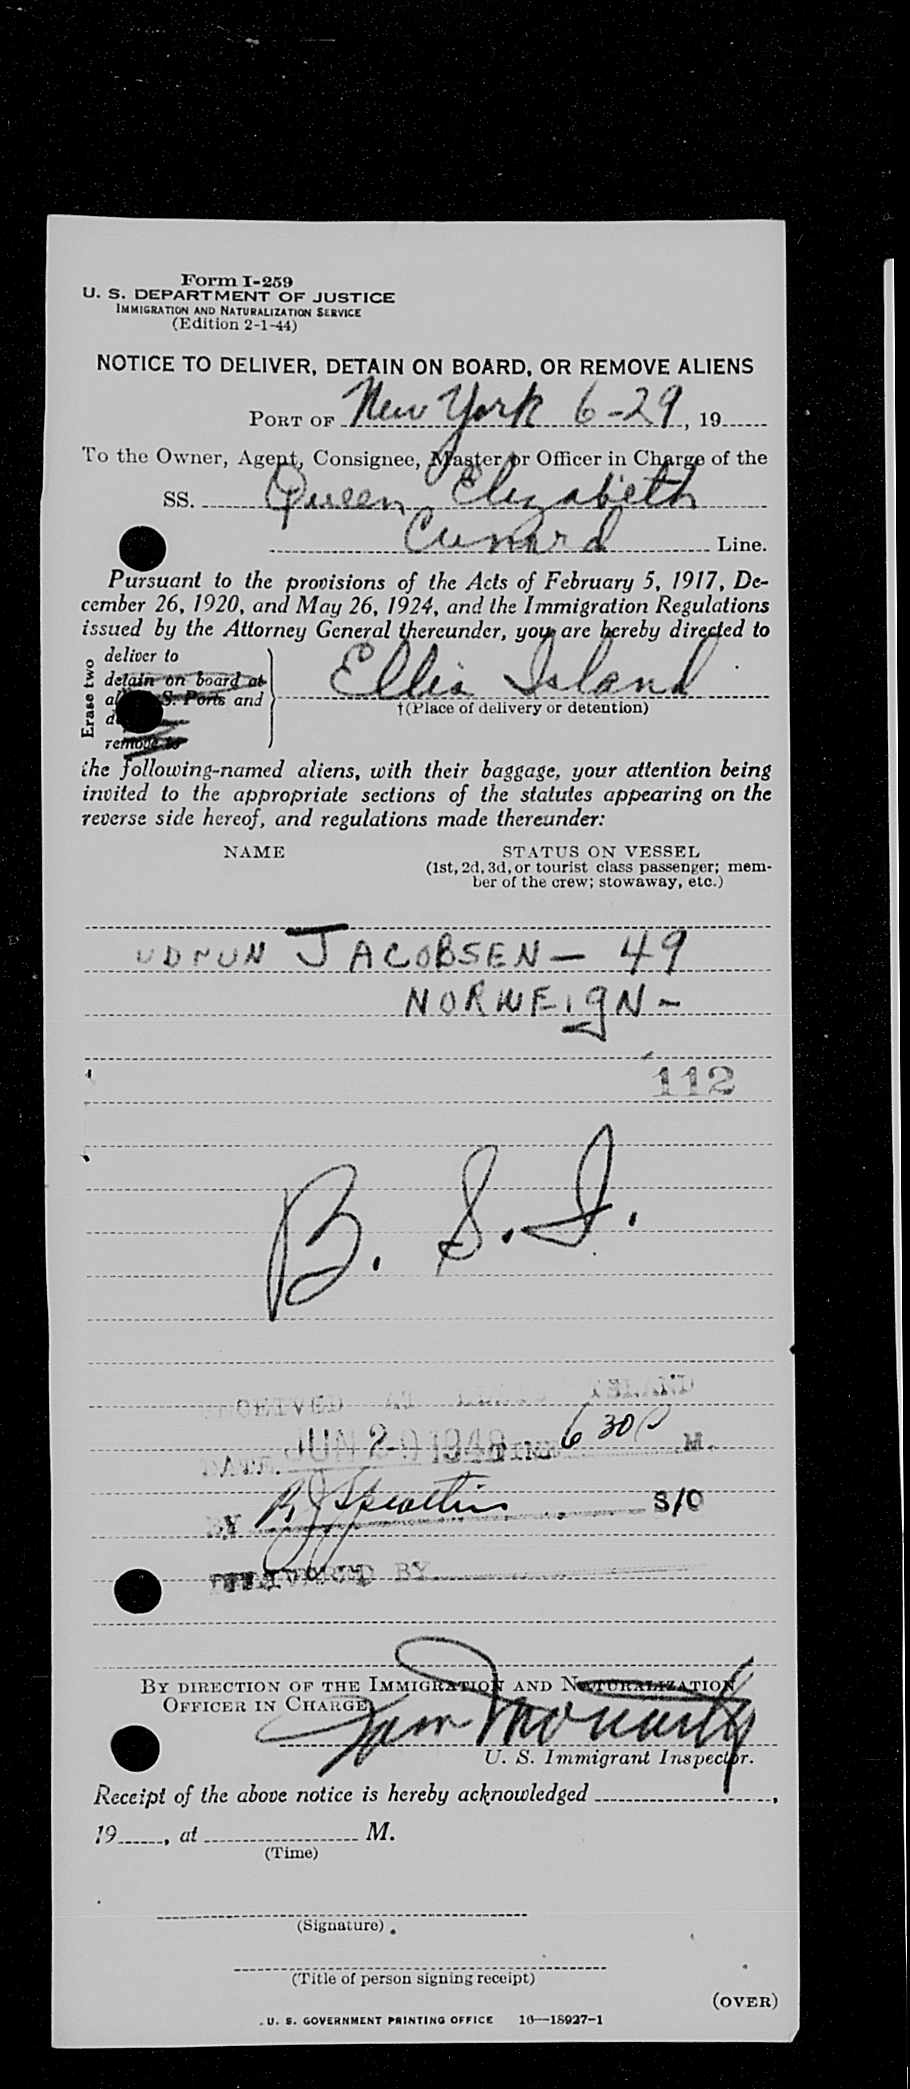 Form I-259
U. S. DEPARTMENT OF JUSTICE
IMMIGRATION AND NATURALIZATION SERVICE
(Edition 2-1-44)
NOTICE TO DELIVER, DETAIN ON BOARD, OR REMOVE ALIENS
PORT OF New York 6-29, 19
To the Owner, Agent, Consignee, Master or Officer in Charge of the
SS. Queen Elizabeth
Cunard Line.
Pursuant to the provisions of the Acts of February 5, 1917, De-
cember 26, 1920, and May 26, 1924, and the Immigration Regulations
issued by the Attorney General thereunder, you are hereby directed to
Erase two
deliver to
detain on board at
S. Ports and
remove to
Ellis Island
†(Place of delivery or detention)
the following-named aliens, with their baggage, your attention being
invited to the appropriate sections of the statutes appearing on the
reverse side hereof, and regulations made thereunder:
NAME STATUS ON VESSEL
(1st, 2d, 3d, or tourist class passenger; mem-
ber of the crew; stowaway, etc.)
JACOBSEN - 49
NORWEIGN -
112
B. S. I.
RECEIVED AT ELLIS ISLAND
DATE JUN 29 1948 TIME 6 30 P M.
BY S/O
DELIVERED BY
BY DIRECTION OF THE IMMIGRATION AND NATURALIZATION
OFFICER IN CHARGE
Moriarty
U. S. Immigrant Inspector.
Receipt of the above notice is hereby acknowledged ,
19 , at M.
(Time)
(Signature)
(Title of person signing receipt)
(OVER)
U. S. GOVERNMENT PRINTING OFFICE 16—18927-1